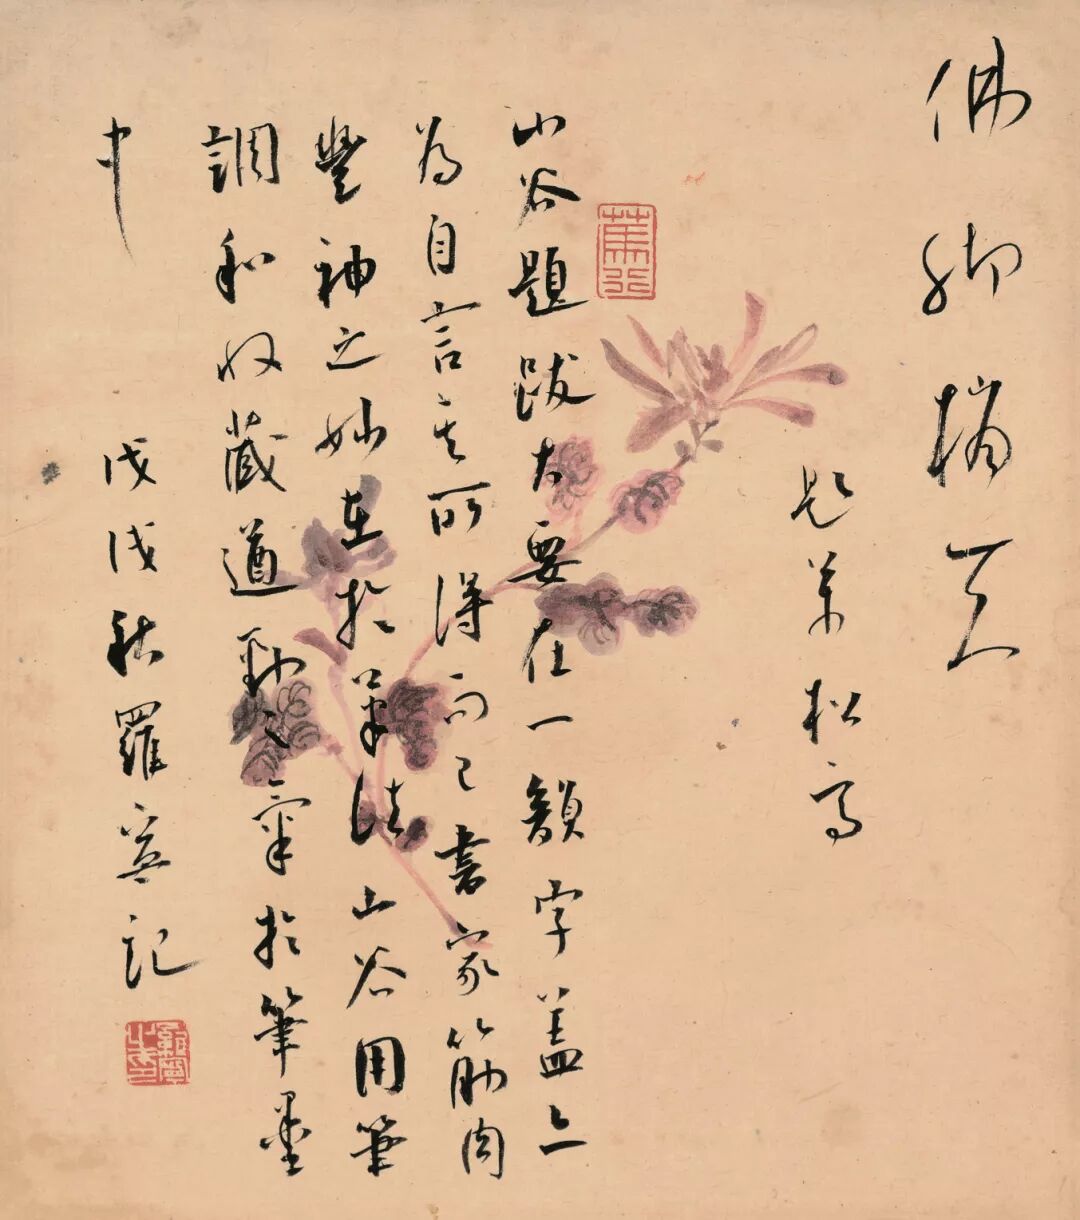 佛
松高
山谷題跋大要在一韻字蓋亦
為自言其所得而已書家筋肉
豐神之妙在於筆法山谷用筆
調和收藏遒勁之氣於筆墨
中
戊戌秋羅寧記